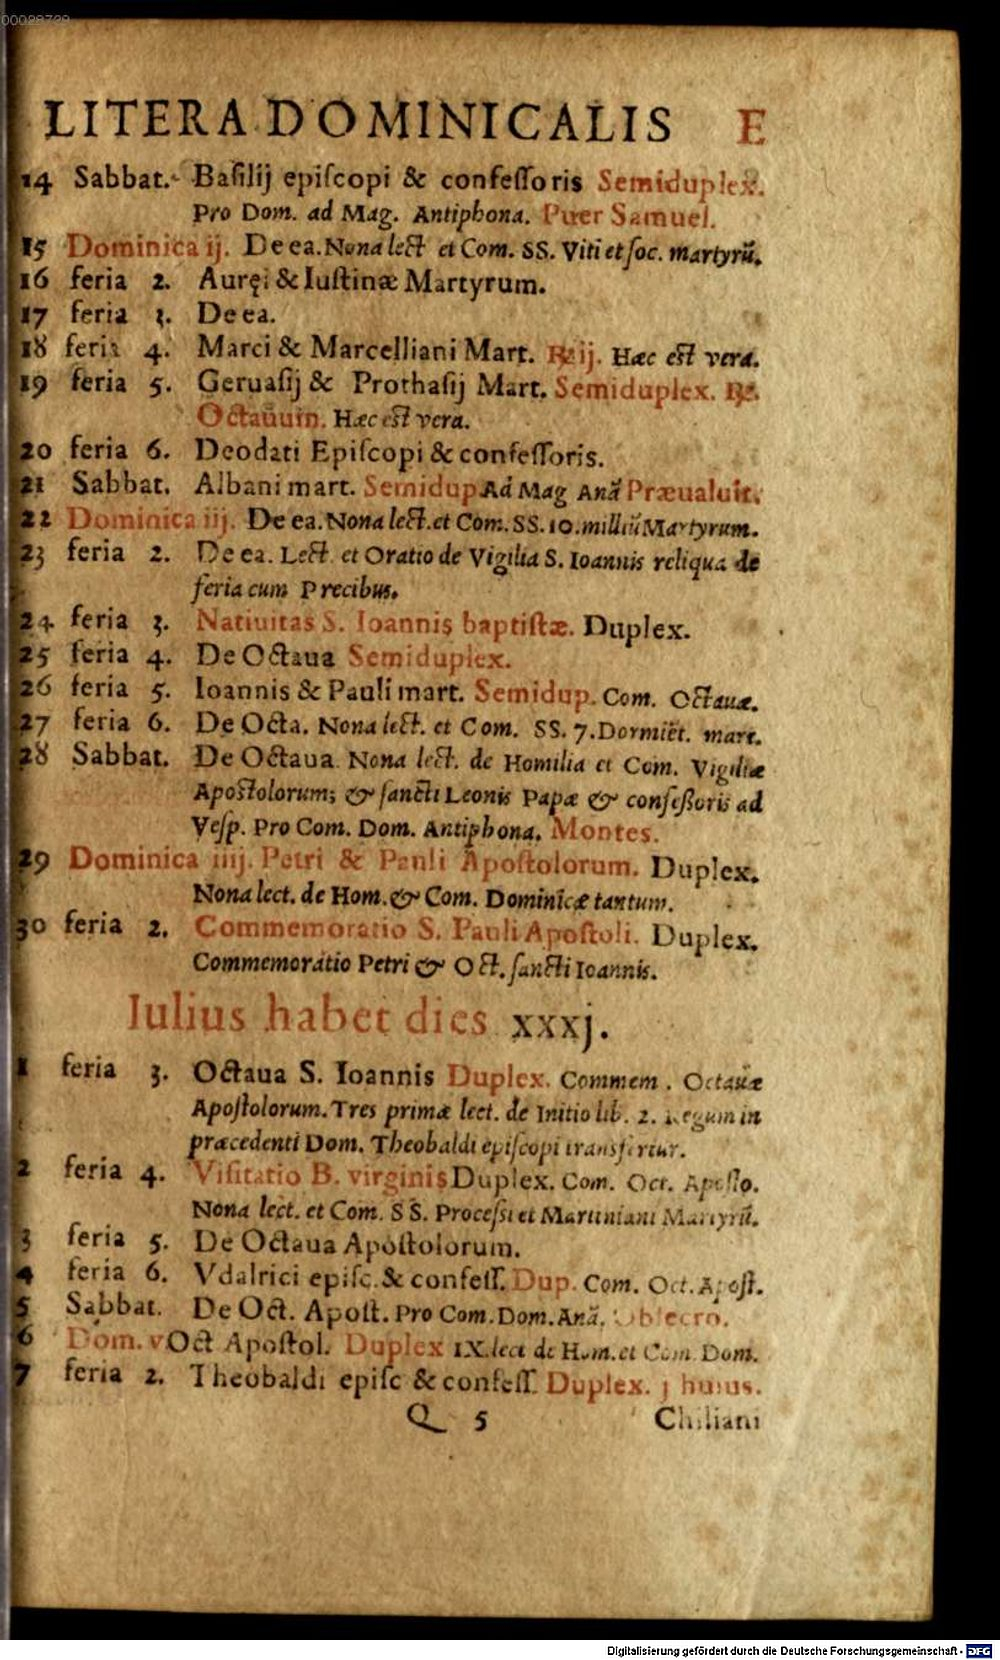 00028729
LITERA DOMINICALIS E
14 Sabbat. Basilij episcopi & confessoris Semiduplex.
Pro Dom. ad Mag. Antiphona. Puer Samuel.
15 Dominica ij. De ea. Nona lect et Com. SS. Viti et soc. martyrũ.
16 feria 2. Auręi & Iustinæ Martyrum.
17 feria 3. De ea.
18 feria 4. Marci & Marcelliani Mart. ℞ ij. Hæc est vera.
19 feria 5. Geruasij & Prothasij Mart. Semiduplex. ℞.
Octauum. Hæc est vera.
20 feria 6. Deodati Episcopi & confessoris.
21 Sabbat. Albani mart. Semidup. Ad Mag Anã Præualuit.
22 Dominica iij. De ea. Nona lect. et Com. SS. 10. milliũ Martyrum.
23 feria 2. De ea. Lect. et Oratio de Vigilia S. Ioannis reliqua de
feria cum Precibus.
24 feria 3. Natiuitas S. Ioannis baptistæ. Duplex.
25 feria 4. De Octaua Semiduplex.
26 feria 5. Ioannis & Pauli mart. Semidup. Com. Octauæ.
27 feria 6. De Octa. Nona lect. et Com. SS. 7. Dormiẽt. mart.
28 Sabbat. De Octaua. Nona lect. de Homilia et Com. Vigiliæ
Apostolorum; & sancti Leonis Papæ & confessoris ad
Vesp. Pro Com. Dom. Antiphona. Montes.
29 Dominica iiij. Petri & Pauli Apostolorum. Duplex.
Nona lect. de Hom. & Com. Dominicæ tantum.
30 feria 2. Commemoratio S. Pauli Apostoli. Duplex.
Commemoratio Petri & Oct. sancti Ioannis.
Iulius habet dies xxxj.
1 feria 3. Octaua S. Ioannis Duplex. Commem. Octauæ
Apostolorum. Tres primæ lect. de Initio lib. 2. Regum in
præcedenti Dom. Theobaldi episcopi transfertur.
2 feria 4. Visitatio B. virginis Duplex. Com. Oct. Aposto.
Nona lect. et Com. SS. Processi et Martiniani Martyrũ.
3 feria 5. De Octaua Apostolorum.
4 feria 6. Vdalrici episc. & confess. Dup. Com. Oct. Apost.
5 Sabbat. De Oct. Apost. Pro Com. Dom. Anã. Obsecro.
6 Dom. v Oct Apostol. Duplex IX. lect de Hom. et Com Dom.
7 feria 2. Theobaldi episc & confess. Duplex. j huius.
Q 5 Chiliani
Digitalisierung gefördert durch die Deutsche Forschungsgemeinschaft - DFG